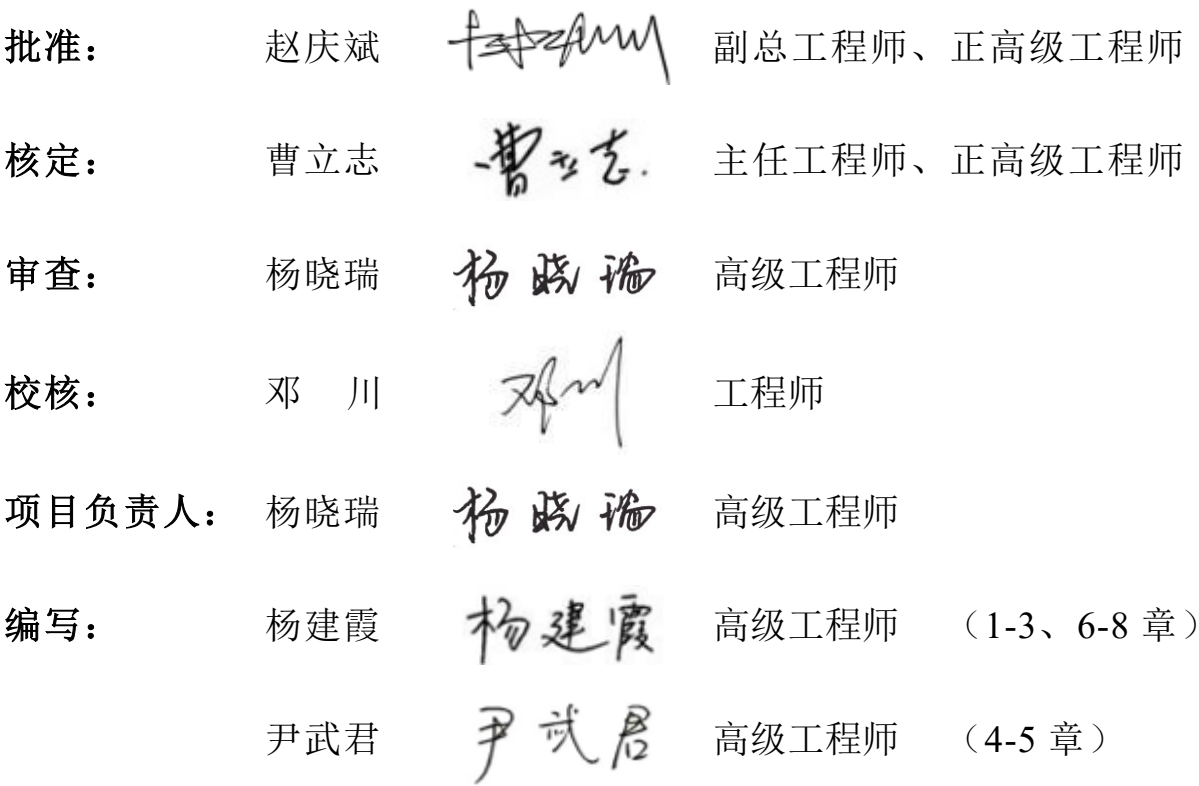 批准： 赵庆斌 副总工程师、正高级工程师
核定： 曹立志 曹立志 主任工程师、正高级工程师
审查： 杨晓瑞 杨晓瑞 高级工程师
校核： 邓 川 邓川 工程师
项目负责人： 杨晓瑞 杨晓瑞 高级工程师
编写： 杨建霞 杨建霞 高级工程师 （1-3、6-8 章）
尹武君 尹武君 高级工程师 （4-5 章）